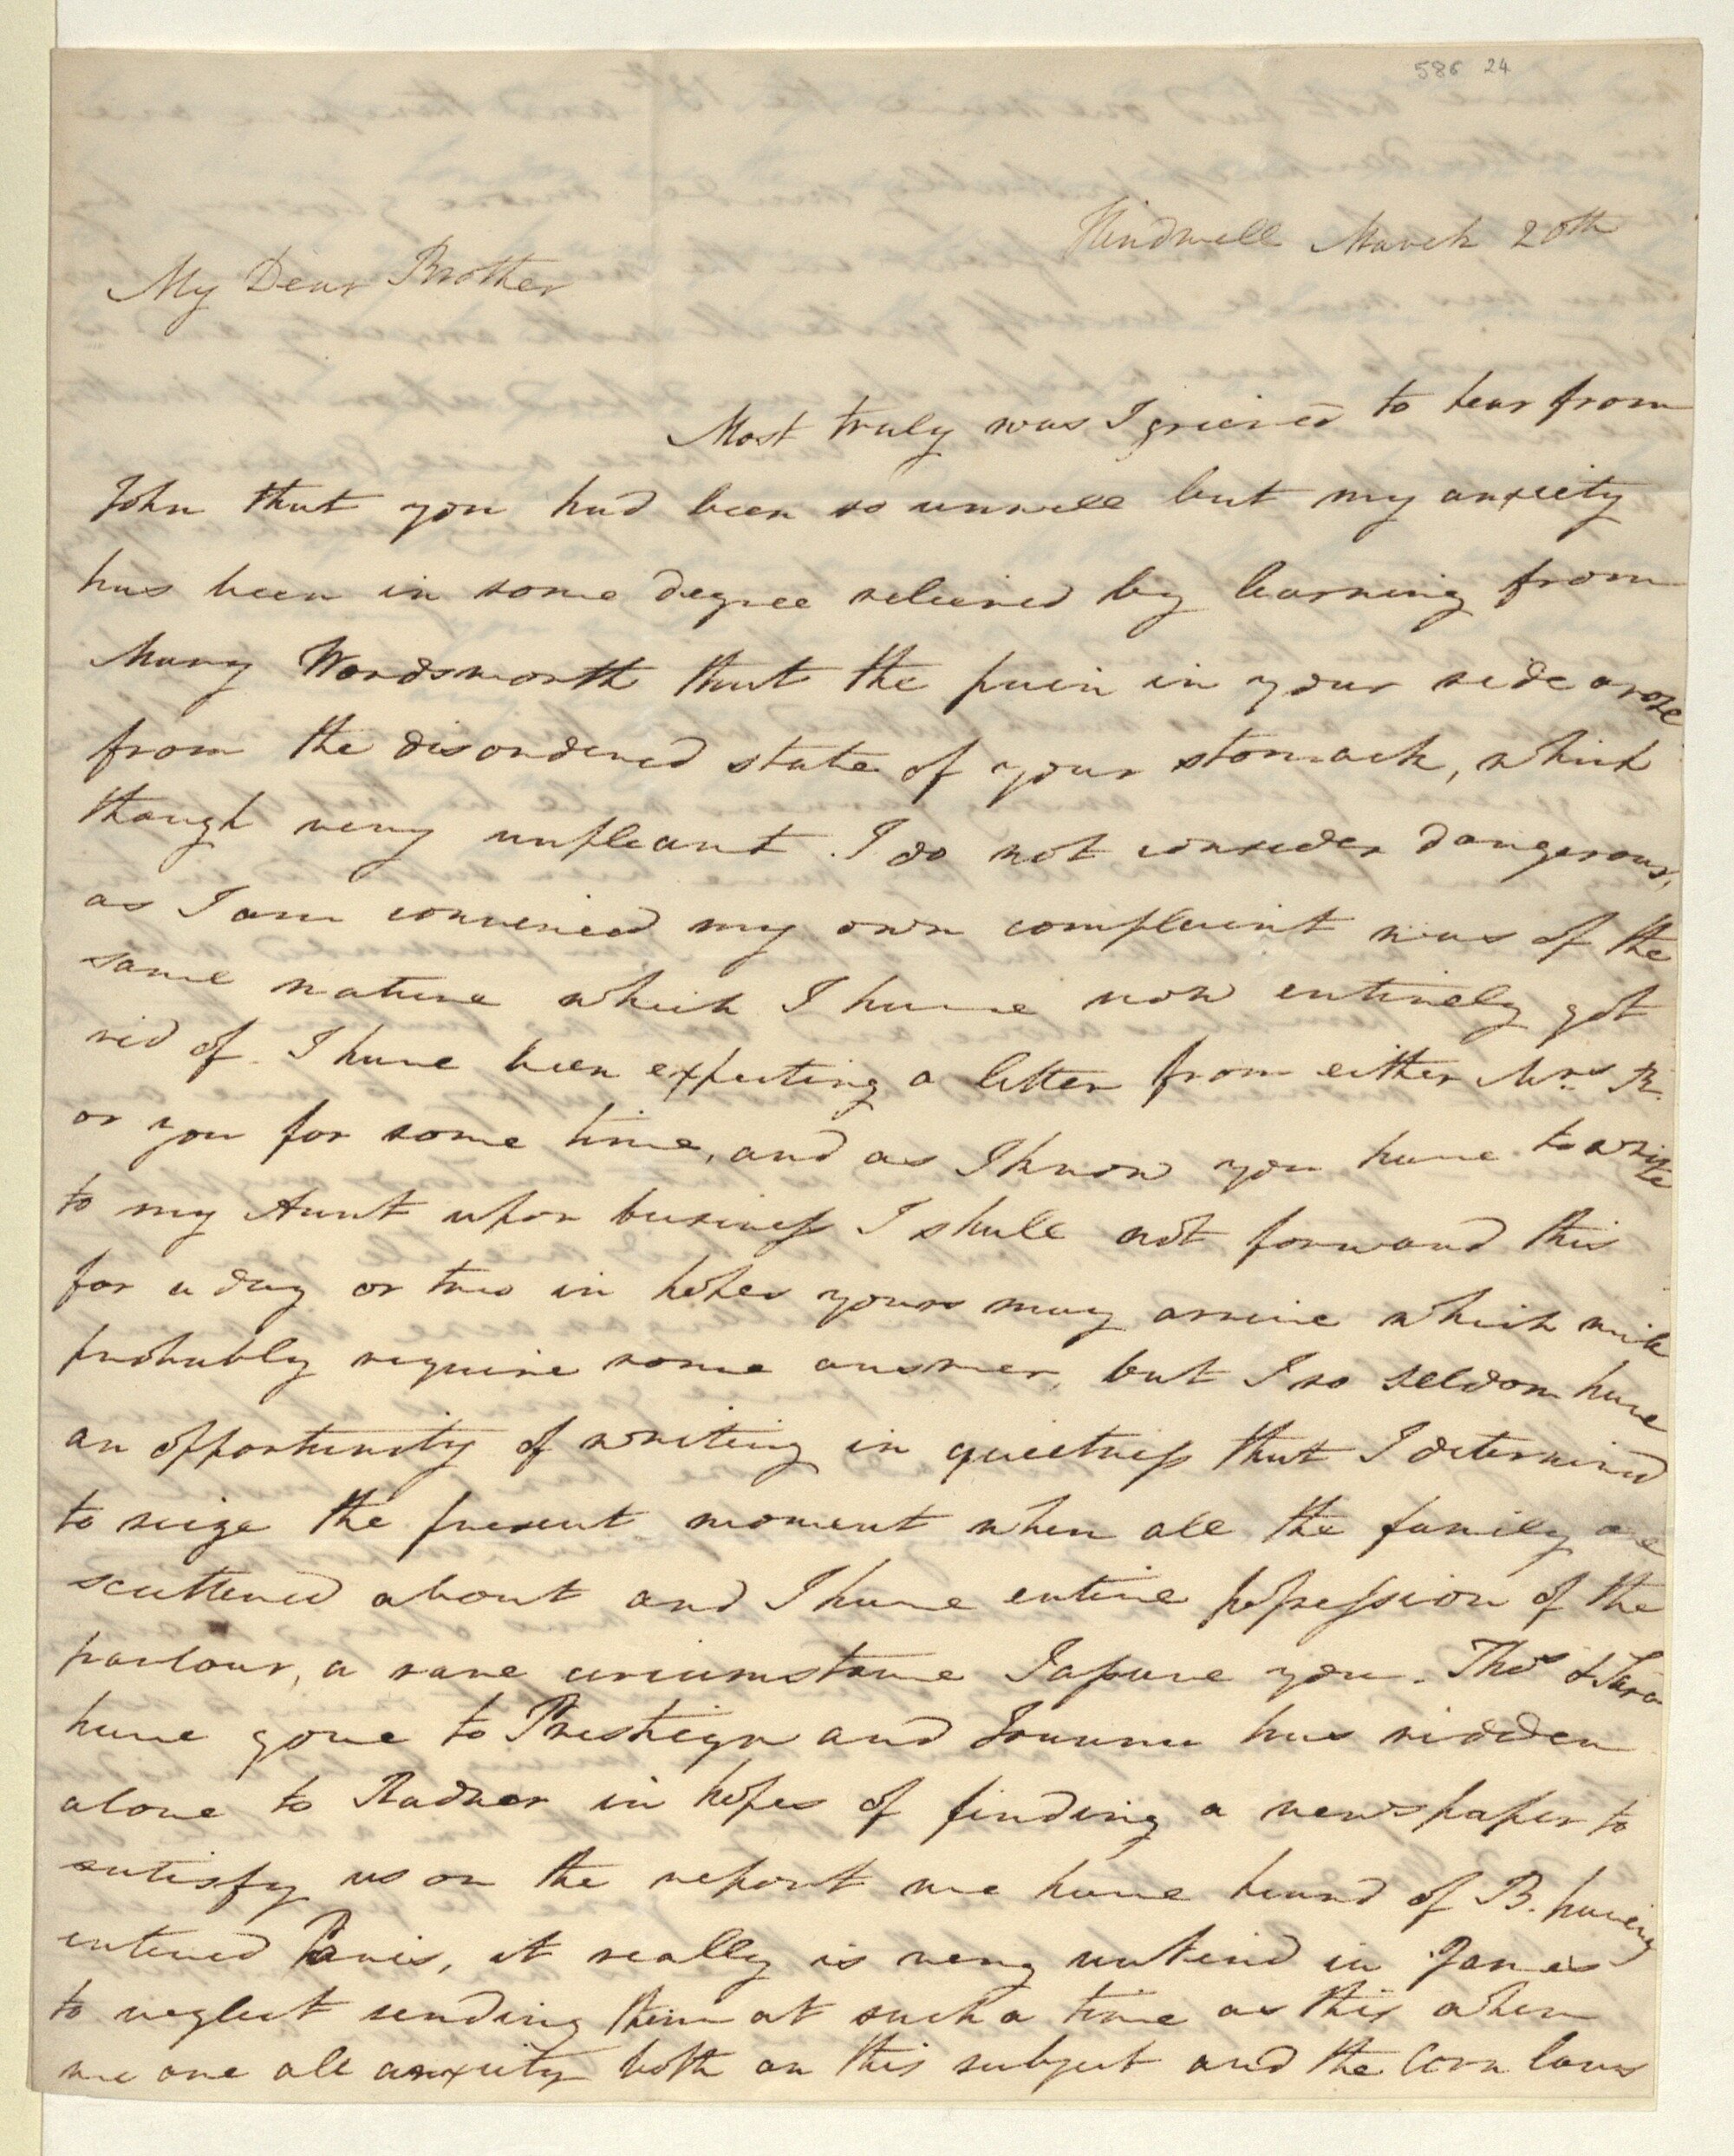 586 24
Hindwell March 20th
My Dear Brother
Most truly was I grieved to hear from
John that you had been so unwell but my anxiety
has been in some degree relieved by learning from
Mary Wordsworth that the pain in your side arose
from the disordered state of your stomach, which
though very unpleant I do not consider dangerous,
as I am convinced my own complaint was of the
same nature which I have now entirely got
rid of. I have been expecting a letter from either Mrs. H.
or you for some time, and as I know you have to write
to my Aunt upon business I shall not forward this
for a day or two in hopes yours may arrive which will
probably require some answer, but I so seldom have
an opportunity of writing in quietness that I determined
to seize the present moment when all the family are
scattered about and I have entire possession of the
parlour, a rare circumstance I assure you. Thos & Sara
have gone to Presteign and Joanna has ridden
alone to Radnor in hopes of finding a newspaper to
satisfy us on the report we have heard of B. having
entered Paris, it really is very unkind in James
to neglect sending them at such a time as this when
we are all anxiety both on this subject and the Corn laws